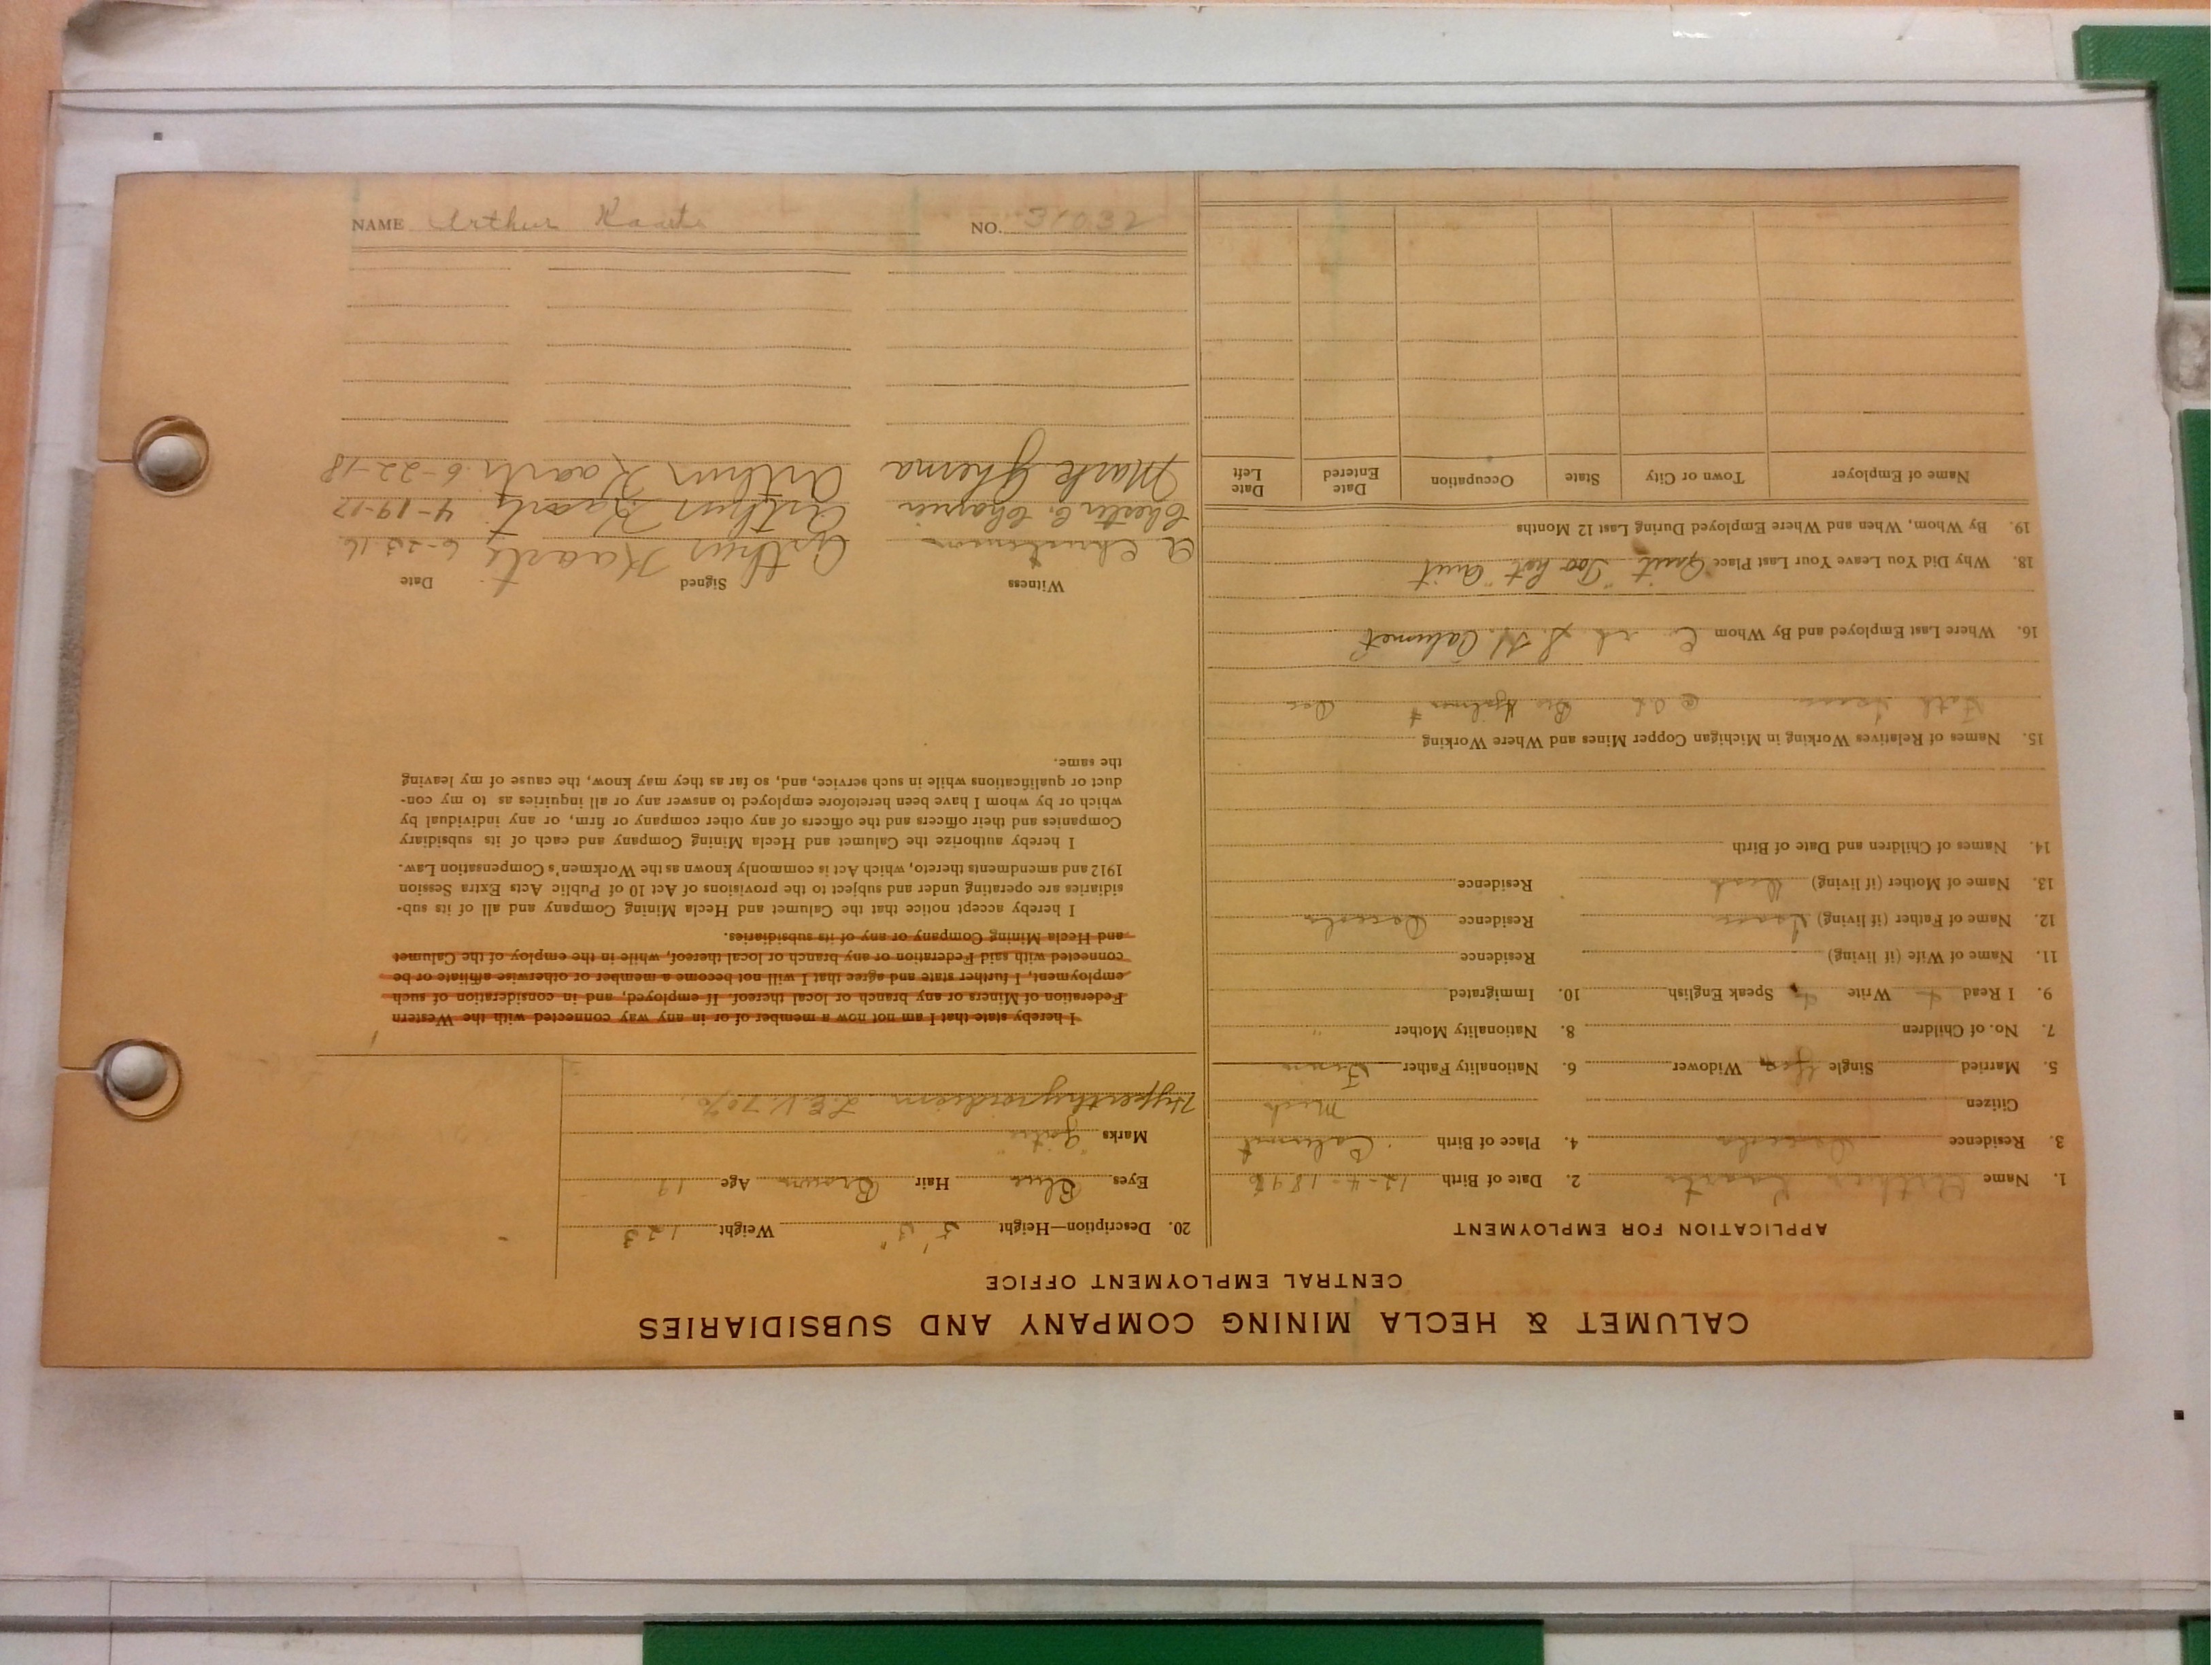 CALUMET & HECLA MINING COMPANY AND SUBSIDIARIES
CENTRAL EMPLOYMENT OFFICE
APPLICATION FOR EMPLOYMENT
1. Name Arthur Kaarto 2. Date of Birth 12-4-1896
3. Residence Osceola 4. Place of Birth Calumet
Citizen Mich
5. Married Single Yes Widower 6. Nationality Father Finn
7. No. of Children 8. Nationality Mother "
9. I Read Write Speak English 10. Immigrated
11. Name of Wife (if living) Residence
12. Name of Father (if living) Residence Osceola
13. Name of Mother (if living) Dead Residence
14. Names of Children and Date of Birth
15. Names of Relatives Working in Michigan Copper Mines and Where Working
Bro Hjalmer
16. Where Last Employed and By Whom Calumet
18. Why Did You Leave Your Last Place Quit "Too hot" Quit
19. By Whom, When and Where Employed During Last 12 Months
Name of Employer Town or City State Occupation Date Entered Date Left
20. Description—Height 5' Weight 123
Eyes Blue Hair Brown Age 19
Marks "Goitre"
Hyperthyroidism L.E.V. 70%
I hereby state that I am not now a member of or in any way connected with the Western
Federation of Miners or any branch or local thereof. If employed, and in consideration of such
employment, I further state and agree that I will not become a member or otherwise affiliate or be
connected with said Federation or any branch or local thereof, while in the employ of the Calumet
and Hecla Mining Company or any of its subsidiaries.
I hereby accept notice that the Calumet and Hecla Mining Company and all of its sub-
sidiaries are operating under and subject to the provisions of Act 10 of Public Acts Extra Session
1912 and amendments thereto, which Act is commonly known as the Workmen's Compensation Law.
I hereby authorize the Calumet and Hecla Mining Company and each of its subsidiary
Companies and their officers and the officers of any other company or firm, or any individual by
which or by whom I have been heretofore employed to answer any or all inquiries as to my con-
duct or qualifications while in such service, and, so far as they may know, the cause of my leaving
the same.
Witness Signed Date
Arthur Kaarto 6-23-16
Chester C. Arthur Kaarto 4-19-17
Mark Arthur Kaarto 6-22-18
NAME Arthur Kaarto NO. 31032